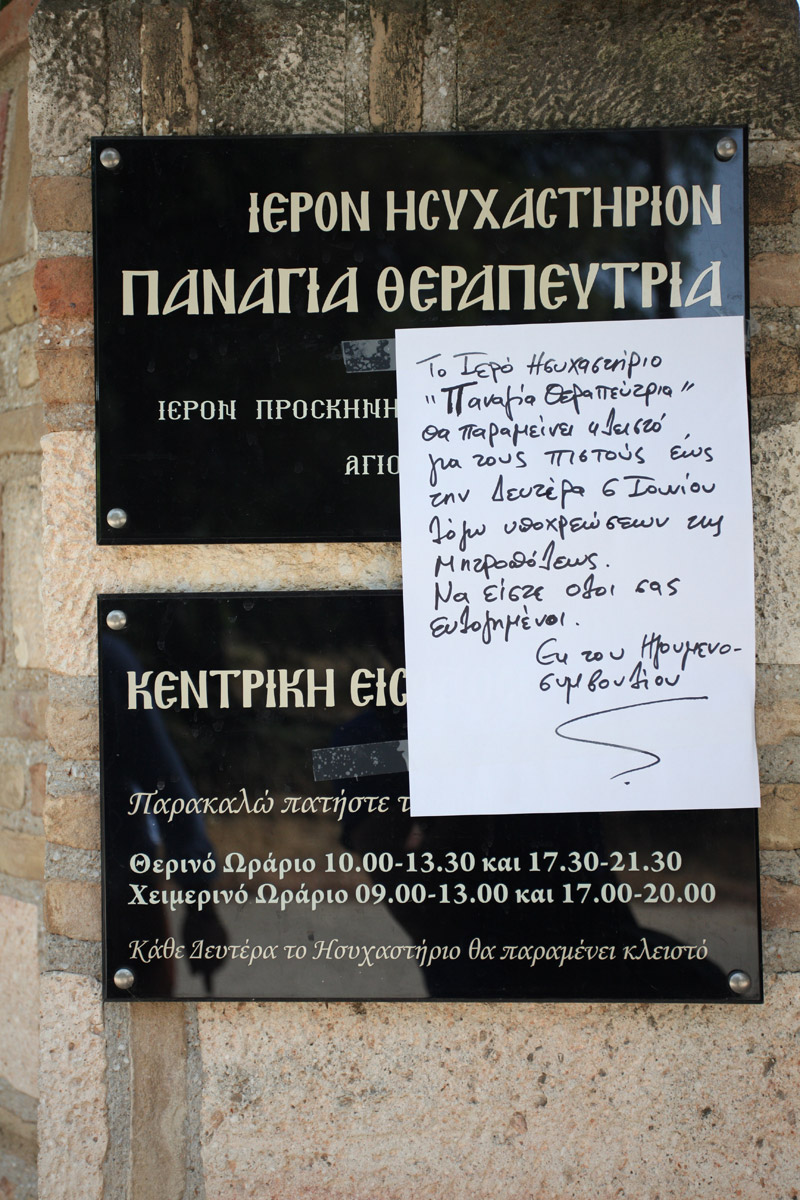 ΙΕΡΟΝ ΗСΥΧΑСΤΗΡΙΟΝ
ΠΑΝΑΓΙΑ ΘΕΡΑΠΕΥΤΡΙΑ
ΙΕΡΟΝ ΠΡΟСΚΗΝΗ
ΑΓΙΟ
Το Ιερό Ησυχαστήριο
"Παναγία Θεραπεύτρια"
θα παραμείνει κλειστό
για τους πιστούς έως
την Δευτέρα 6 Ιουνίου
λόγω υποχρεώσεων της
Μητροπόλεως.
Να είστε όλοι σας
ευλογημένοι.
Εκ του Ηγουμενο-
συμβουλίου
ΚΕΝΤΡΙΚΗ ΕΙС
Παρακαλώ πατήστε τ
Θερινό Ωράριο 10.00-13.30 και 17.30-21.30
Χειμερινό Ωράριο 09.00-13.00 και 17.00-20.00
Κάθε Δευτέρα το Ησυχαστήριο θα παραμένει κλειστό